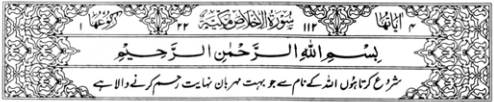 اٰيَاتُهَا ۴ ۱۱۲ سُوْرَةُ الْاِخْلَاصِ مَكِّيَّةٌ ۲۲ رُكُوْعُهَا ۱
بِسْمِ اللّٰهِ الرَّحْمٰنِ الرَّحِيْمِ
شروع کرتا ہوں اللہ کے نام سے جو بہت مہربان نہایت رحم کرنے والا ہے